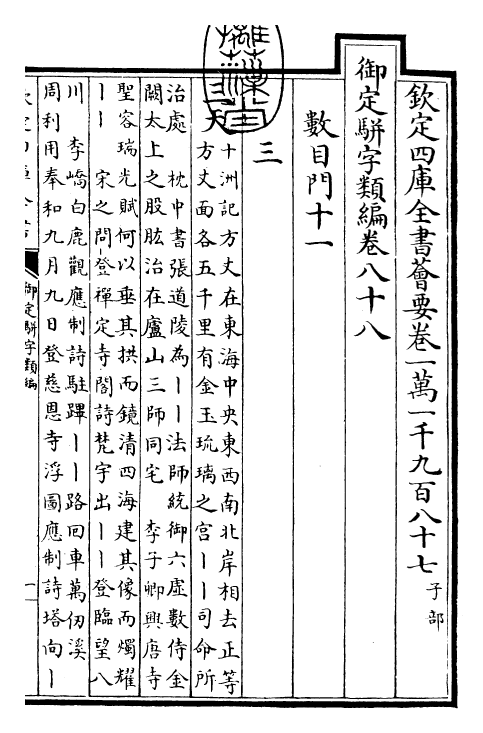 欽定四庫全書薈要卷一萬一千九百八十七 子部
御定駢字類編卷八十八
數目門十一
三
天
十洲記方丈在東海中央東西南北岸相去正等
方丈面各五千里有金玉琉璃之宮丨丨司命所
治處 枕中書張道陵為丨丨法師統御六虛數侍金
闕太上之股肱治在廬山三師同宅 李子卿興唐寺
聖容瑞光賦何以垂其拱而鏡清四海建其像而燭耀
丨丨 宋之問登禪定寺閣詩梵宇出丨丨登臨望八
川 李嶠白鹿觀應制詩駐蹕丨丨路回車萬仞溪
周利用奉和九月九日登慈恩寺浮圖應制詩塔向丨
御定駢字類編
一